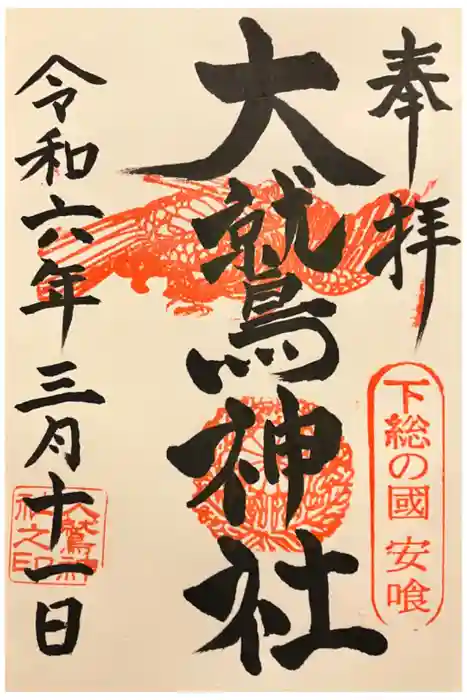 奉拝
下総の國 安喰
大鷲神社
令和六年三月十一日
大鷲神
社之印